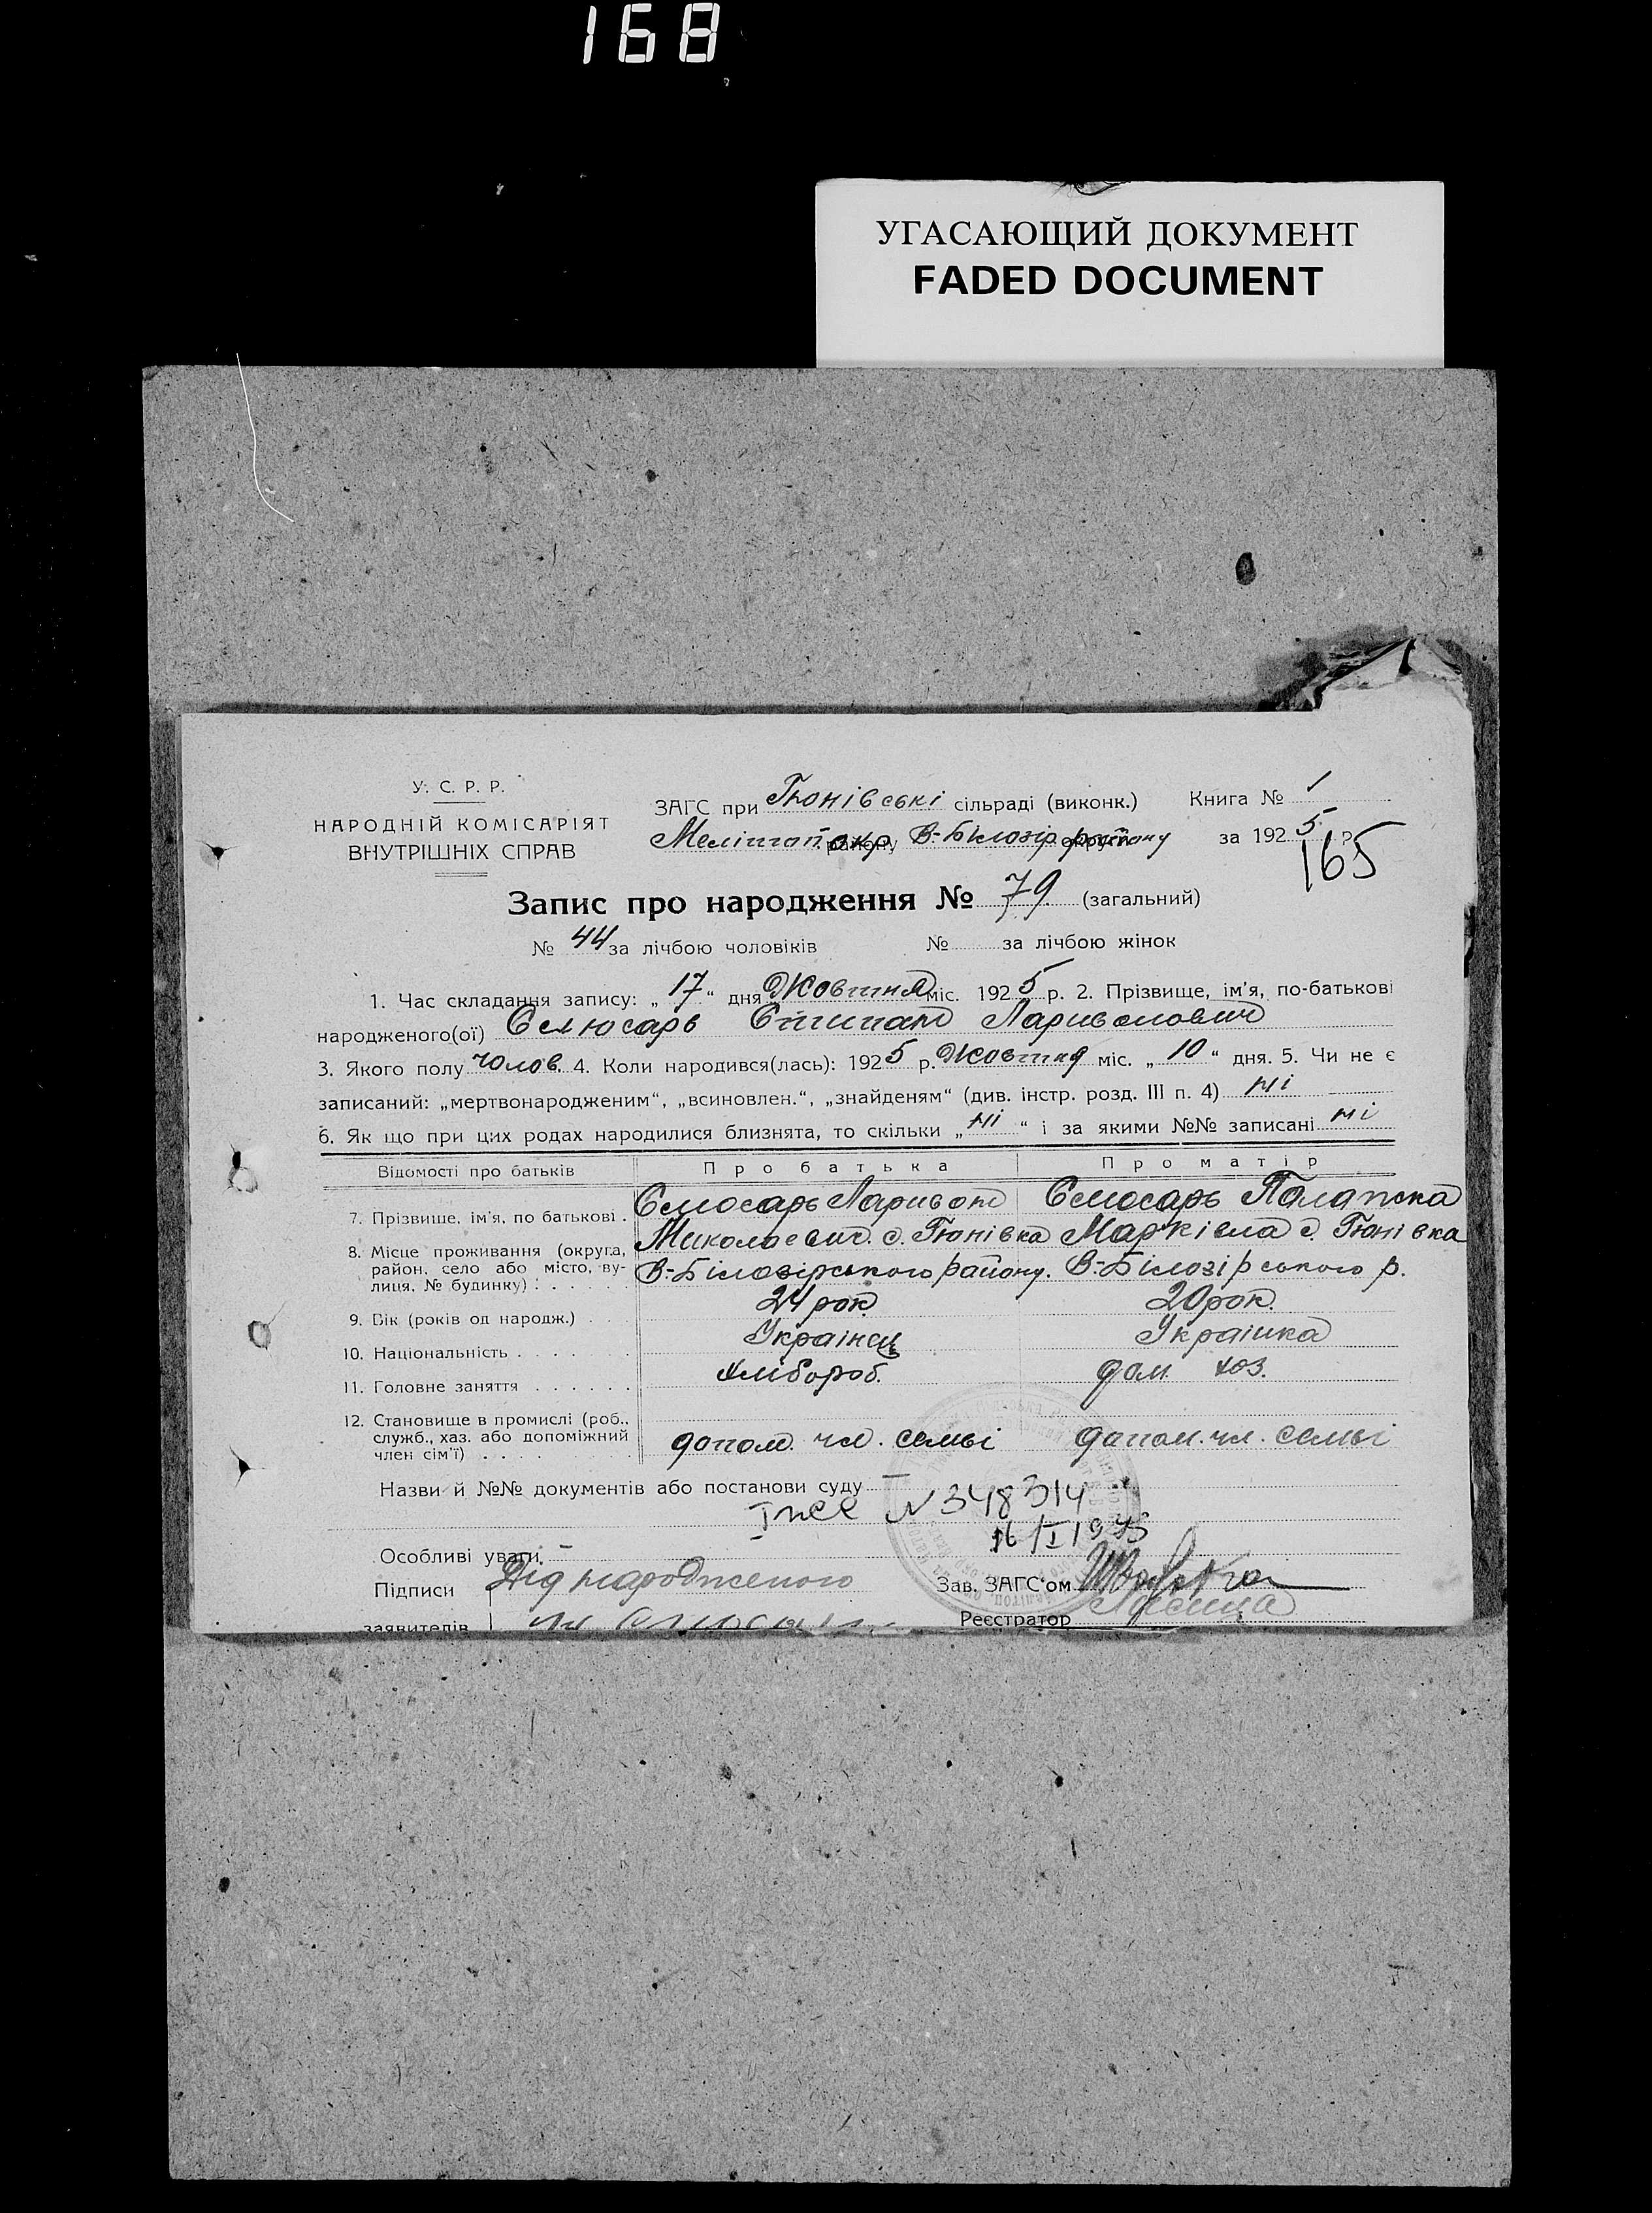 168
УГАСАЮЩИЙ ДОКУМЕНТ
FADED DOCUMENT
У. С. Р. Р.
НАРОДНІЙ КОМІСАРІЯТ
ВНУТРІШНІХ СПРАВ
ЗАГС при Гюнівські сільраді (виконк.) Книга № 1
Мелітоп. окр В.-Білозір району за 1925 р
165
Запис про народження № 79 (загальний)
№ 44 за лічбою чоловіків № за лічбою жінок
1. Час складання запису: „17“ дня Жовтня міс. 1925 р. 2. Прізвище, ім'я, по-батькові
народженого(ої) Слюсарь Ларивонович
3. Якого полу чолов. 4. Коли народився(лась): 1925 р. Жовтня міс. „10“ дня. 5. Чи не є
записаний: „мертвонародженим“, „всиновлен.“, „знайденям“ (див. інстр. розд. III п. 4) ні
6. Як що при цих родах народилися близнята, то скільки „ні“ і за якими №№ записані ні
Відомості про батьків Про батька Про матір
7. Прізвище, ім'я, по батькові . Слюсарь Ларивон Слюсарь Палажка
Миколаевич. с. Гюнівка Марківна с. Гюнівка
8. Місце проживання (округа,
район, село або місто, ву-
лиця, № будинку) : . . . . . В.-Білозірського району. В.-Білозірського р.
9. Вік (років од народж.) . . . 24 рок. 20 рок.
10. Національність . . . . . Українец Украінка
11. Головне заняття . . . . . . хлібороб. дом. хоз.
12. Становище в промислі (роб.,
служб., хаз. або допоміжний
член сім'ї) . . . . . . допом. чл. семьі допом. чл. семьі
Назви й №№ документів або постанови суду —
N 348314
16/I 1945
Особливі уваги —
Підписи Дід народженого Зав. ЗАГС'ом
заявителів Реєстратор